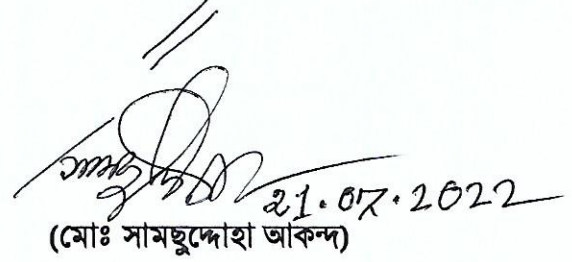 21.07.2022
(মোঃ সামছুদ্দোহা আকন্দ)